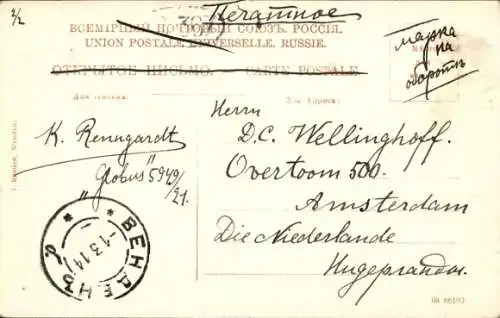 2/2
Печатное
ВСЕМІРНЫЙ ПОЧТОВЫЙ СОЮЗЪ. РОССІЯ.
UNION POSTALE UNIVERSELLE. RUSSIE.
ОТКРЫТОЕ ПИСЬМО. — CARTE POSTALE.
марка
на
оборотѣ
Для Адреса:
Herrn
D.C. Wellinghoff.
Overtoom 500.
Amsterdam
Die Niederlande
Нидерланды.
K. Renngardt
"Globus" 5949/21.
ВЕНДЕНЪ
-1 3 14